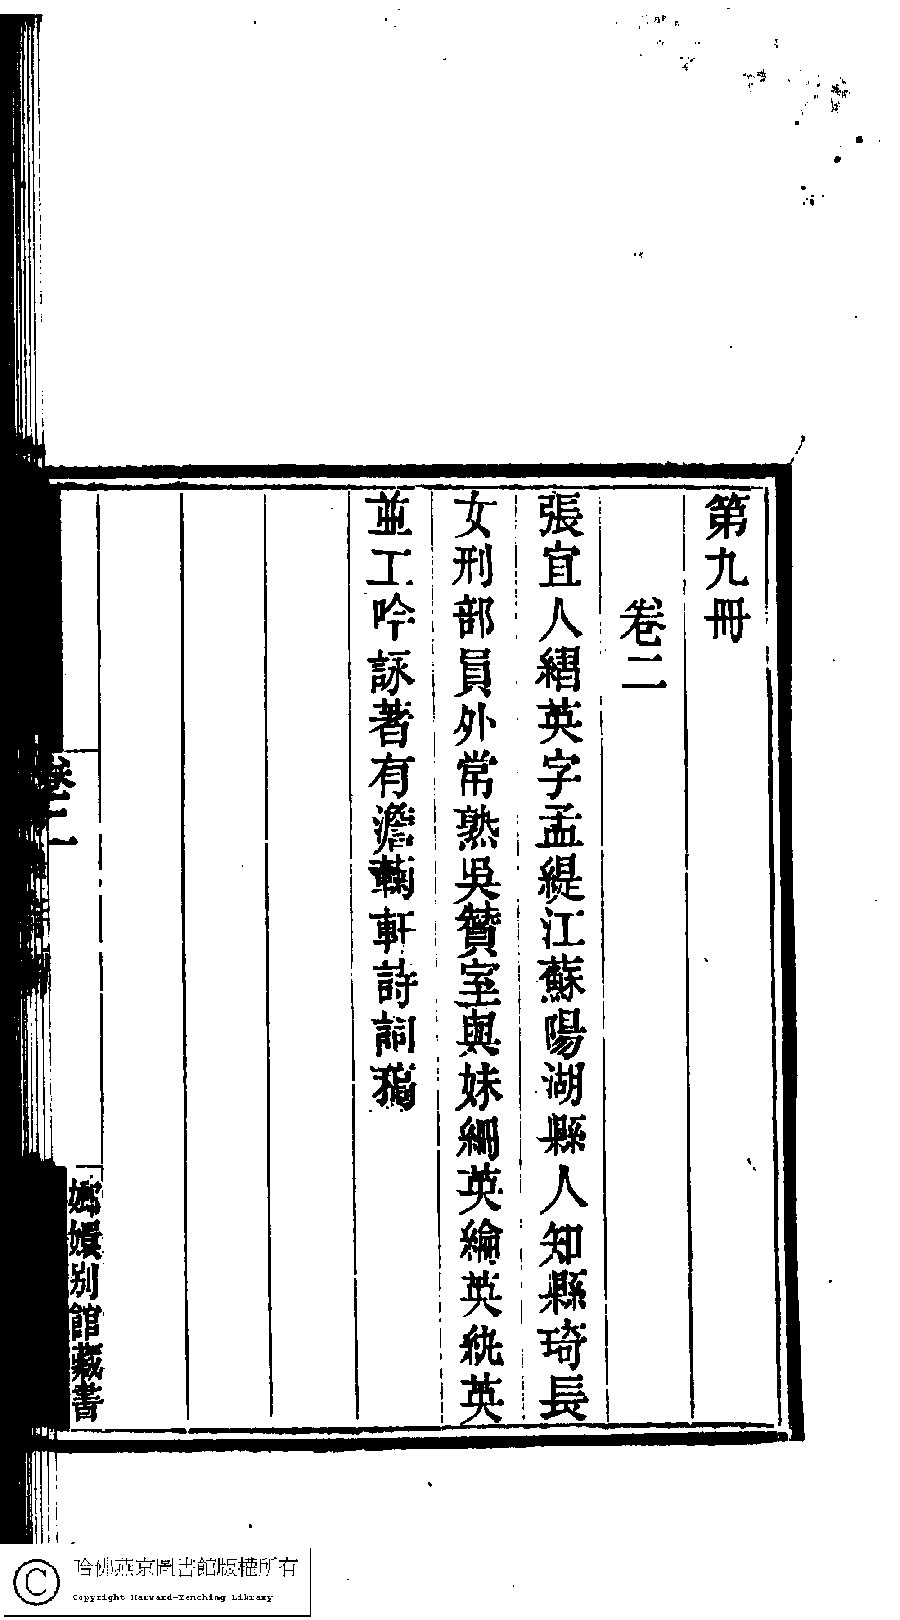 第九冊
卷二
張宜人䌖英字孟緹江蘇陽湖縣人知縣琦長
女刑部員外常熟吳贊室與妹䌹英綸英紈英
並工吟詠著有澹蘜軒詩詞稿
卷二
嫏嬛別館藏書
哈佛燕京圖書館版權所有
Copyright Harvard-Yenching Library